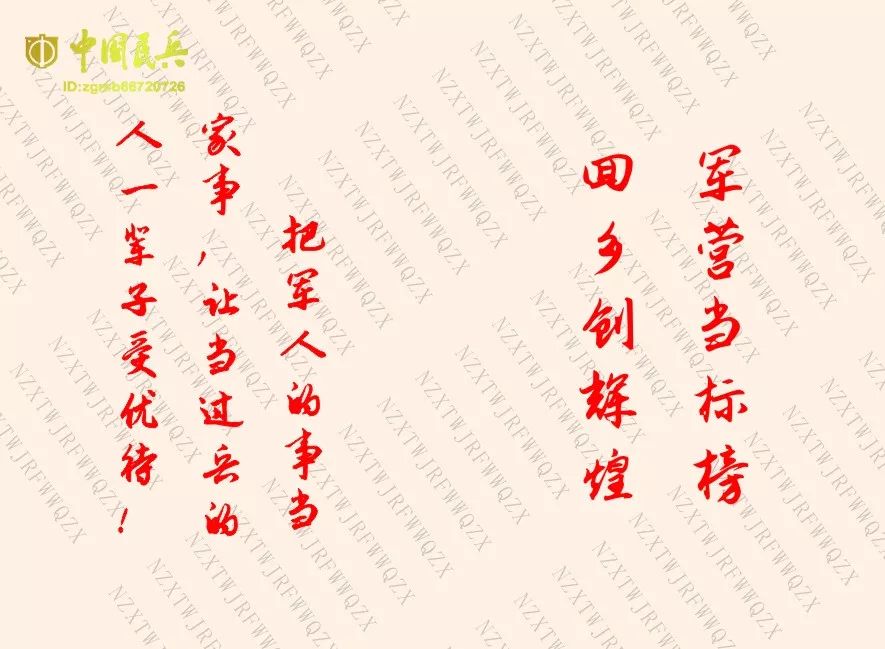 中国民兵
ID:zgmb86720726
军营当标榜
回乡创辉煌
把军人的事当
家事，让当过兵的
人一辈子受优待！
NZXTWJRFWWQZX